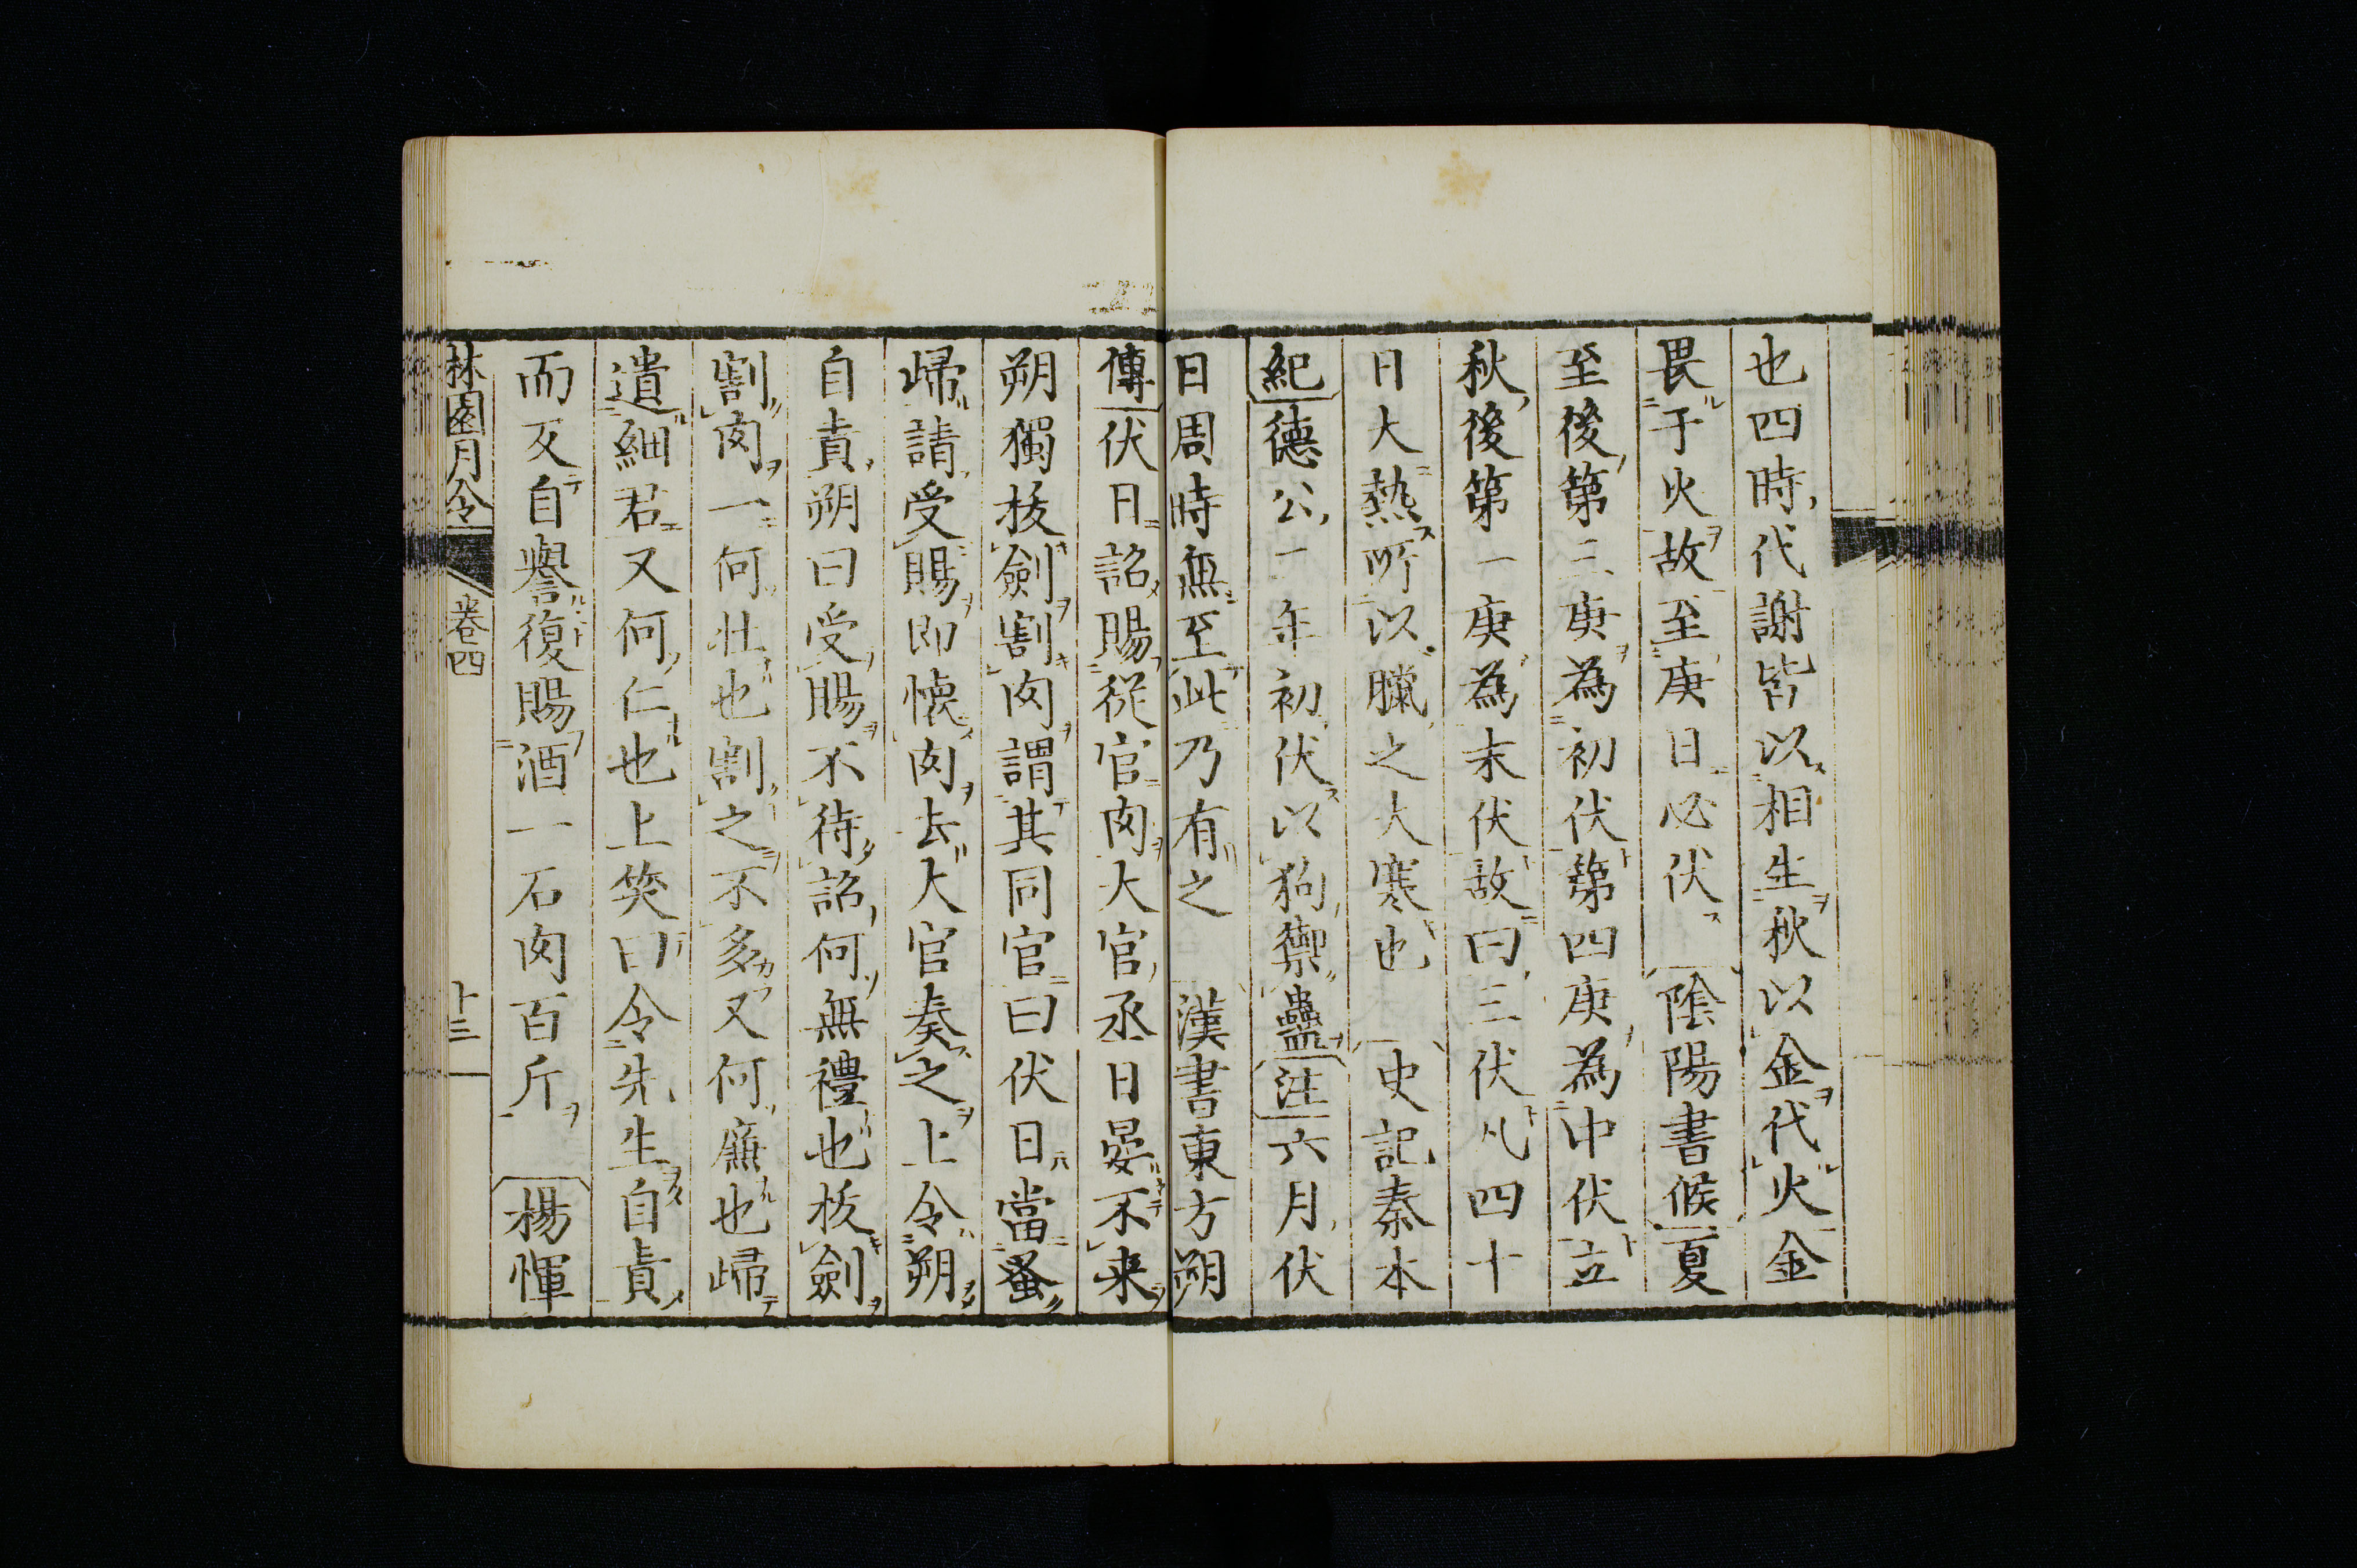 也四時代謝皆以相生秋以金代火金
畏于火故至庚日必伏 陰陽書候夏
至後第三庚為初伏第四庚為中伏立
秋後第一庚為末伏故曰三伏凡四十
日大熱所以臘之大寒也 史記秦本
紀德公二年初伏以狗禦蠱注六月伏
日周時無至此乃有之 漢書東方朔
傳伏日詔賜從官肉大官丞日晏不来
朔獨拔劍割肉謂其同官曰伏日當蚤
歸請受賜即懐肉去大官奏之上令朔
自責朔曰受賜不待詔何無禮也拔劍
割肉一何壮也割之不多又何廉也歸
遺細君又何仁也上笑曰令先生自責
而反自譽復賜酒一石肉百斤 楊惲
林園月令 卷四 十三